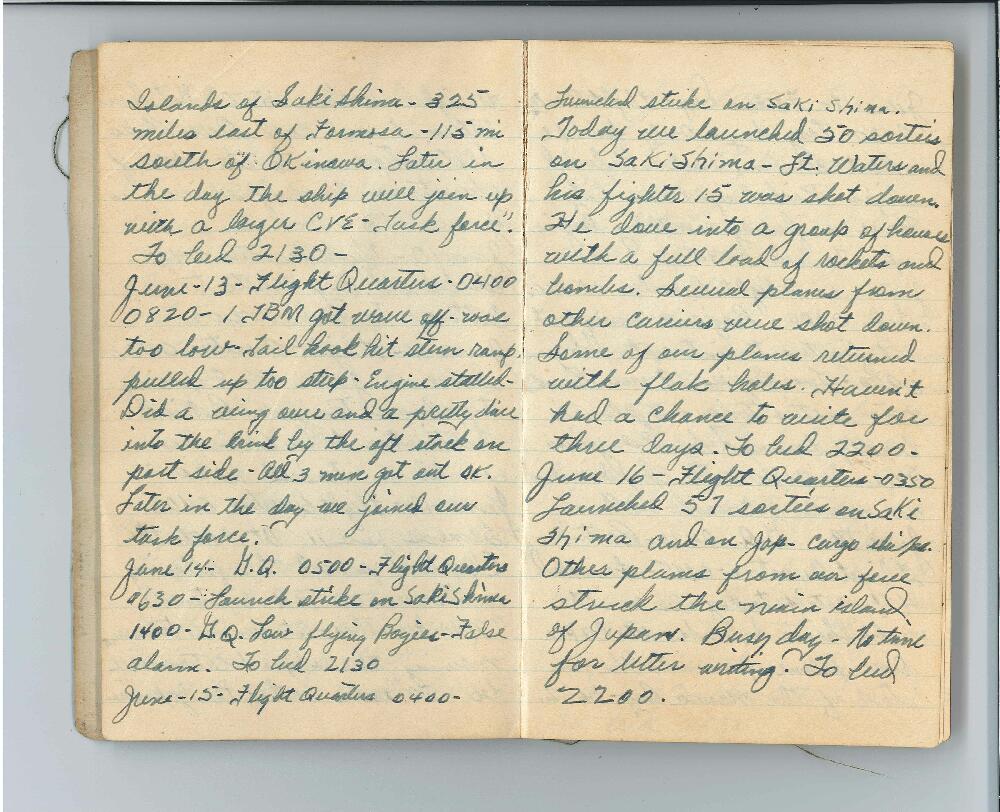 Islands of Saki Shima - 325
miles east of Formosa - 115 mi
south of Okinawa. Later in
the day the ship will join up
with a larger CVE - Task force".
To bed 2130 -
June - 13 - Flight Quarters - 0400
0820 - 1 TBM got wave off - was
too low - Tail hook hit stern ramp.
pulled up too steep - Engine stalled -
Did a wing over and a pretty dive
into the drink by the aft stack on
port side - All 3 men got out OK.
Later in the day we joined our
task force.
June 14 - G.Q. 0500 - Flight Quarters
0630 - Launch strike on Saki Shima
1400 - G.Q. Low flying Bogies - False
alarm. To bed 2130
June - 15 - Flight Quarters 0400 -
Launched strike on Saki Shima.
Today we launched 50 sorties
on Saki Shima - Lt. Waters and
his fighter 15 was shot down.
He dove into a group of houses
with a full load of rockets and
bombs. Several planes from
other carriers were shot down.
Some of our planes returned
with flak holes. Haven't
had a chance to write for
three days. To bed 2200 -
June 16 - Flight Quarters - 0350
Launched 57 sorties on Saki
Shima and on Jap - cargo ships.
Other planes from our force
struck the main island
of Japan. Busy day - No time
for letter writing. To bed
2200.